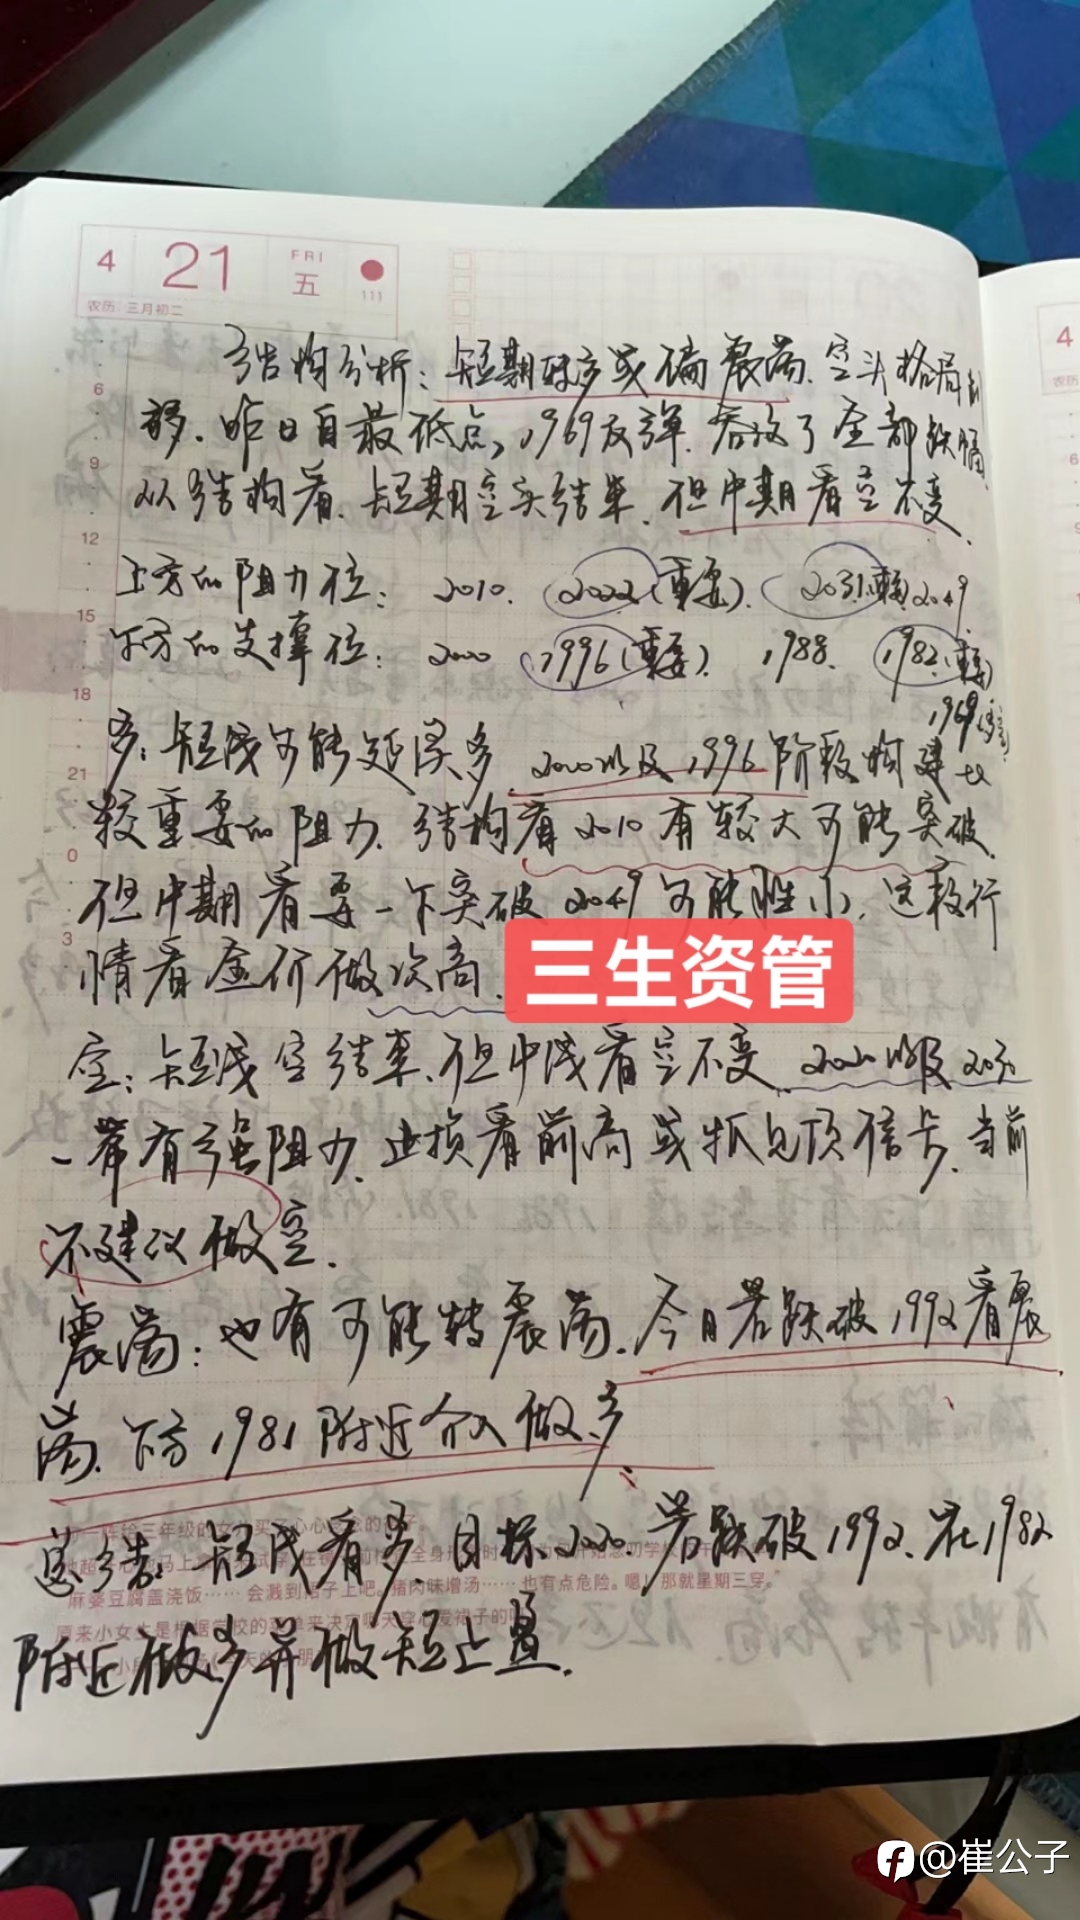 4 21 FRI 五 111
农历 三月初二
结构分析：短期转多或偏震荡.空头格局
移.昨日自最低点,1969反弹.吞没了全部跌幅
从结构看.短期空头结束.但中期看空不变.
上方的阻力位：2010. 2022(重要). 2031(重要) 2049
下方的支撑位：2000 1996(重要). 1988. 1982.(重要)
1969
多：短线可能延续多.2000以及1996阶段构建
较重要的阻力.结构看2010有较大可能突破.
但中期看要一下突破2049可能性小.这段行
情看金价做次高.
三生资管
空：短线空结束.但中线看空不变.2020以及2030
一带有强阻力.止损看前高或抓见顶信号.当前
不建议做空.
震荡：也有可能转震荡.今日若跌破1992看震
荡.下方1981附近介入做多.
总结：短线看多.目标2020.若跌破1992.在1982
附近做多并做短止盈.
6
9
12
15
18
21
0
3
麻婆豆腐盖浇饭…… 会溅到裙子上吧。猪肉味增汤…… 也有点危险。嗯！那就星期三穿。”
4
农历
@崔公子